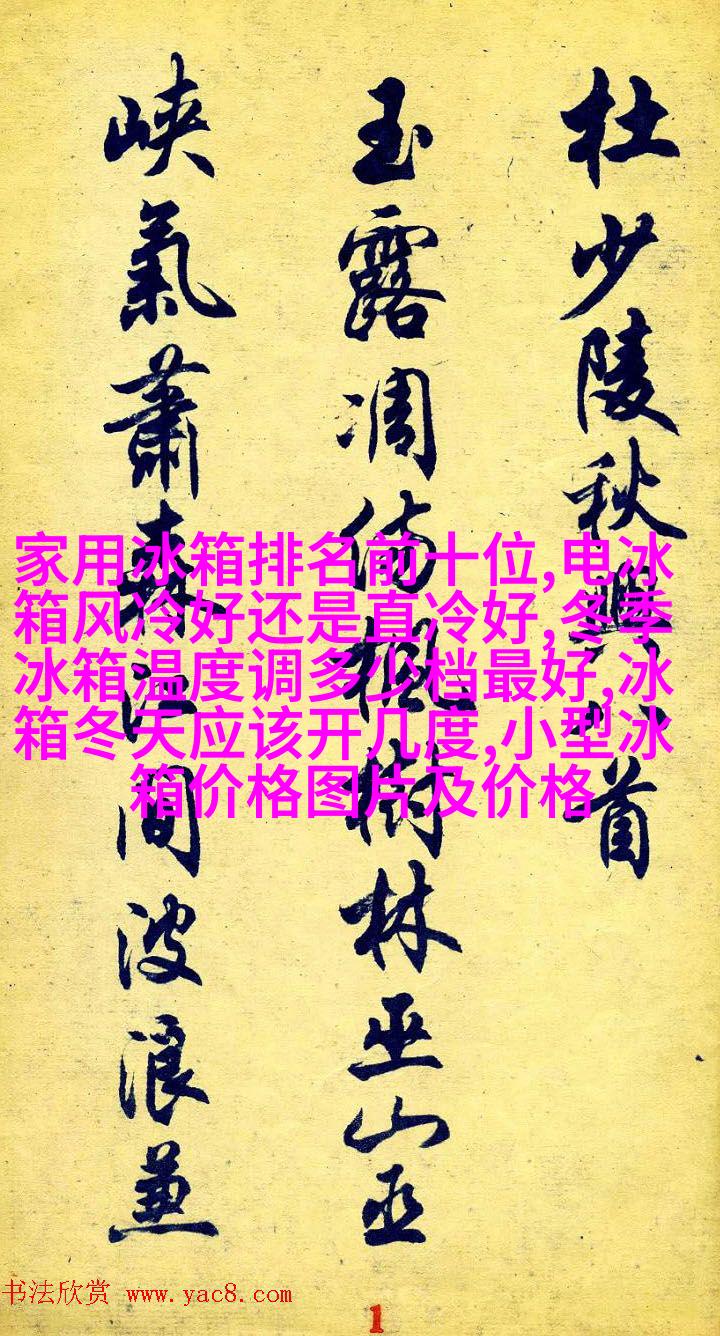 杜少陵秋興八首
玉露凋傷楓樹林巫山巫
峽氣蕭森江間波浪兼
家用冰箱排名前十位,电冰
箱风冷好还是直冷好,冬季
冰箱温度调多少档最好,冰
箱冬天应该开几度,小型冰
箱价格图片及价格
书法欣赏 www.yac8.com
1